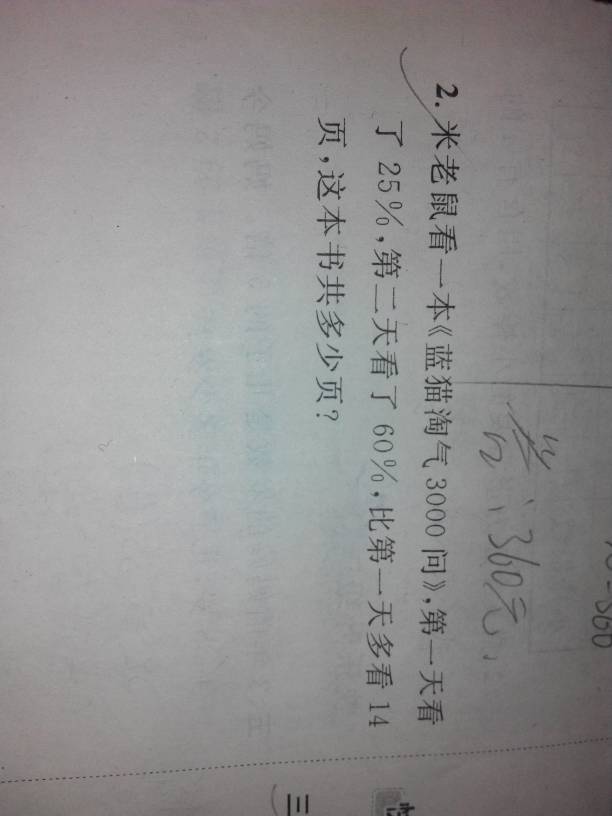 -360
答:360元.
2. 米老鼠看一本《蓝猫淘气3000问》,第一天看
了25%,第二天看了60%,比第一天多看14
页,这本书共多少页?
三